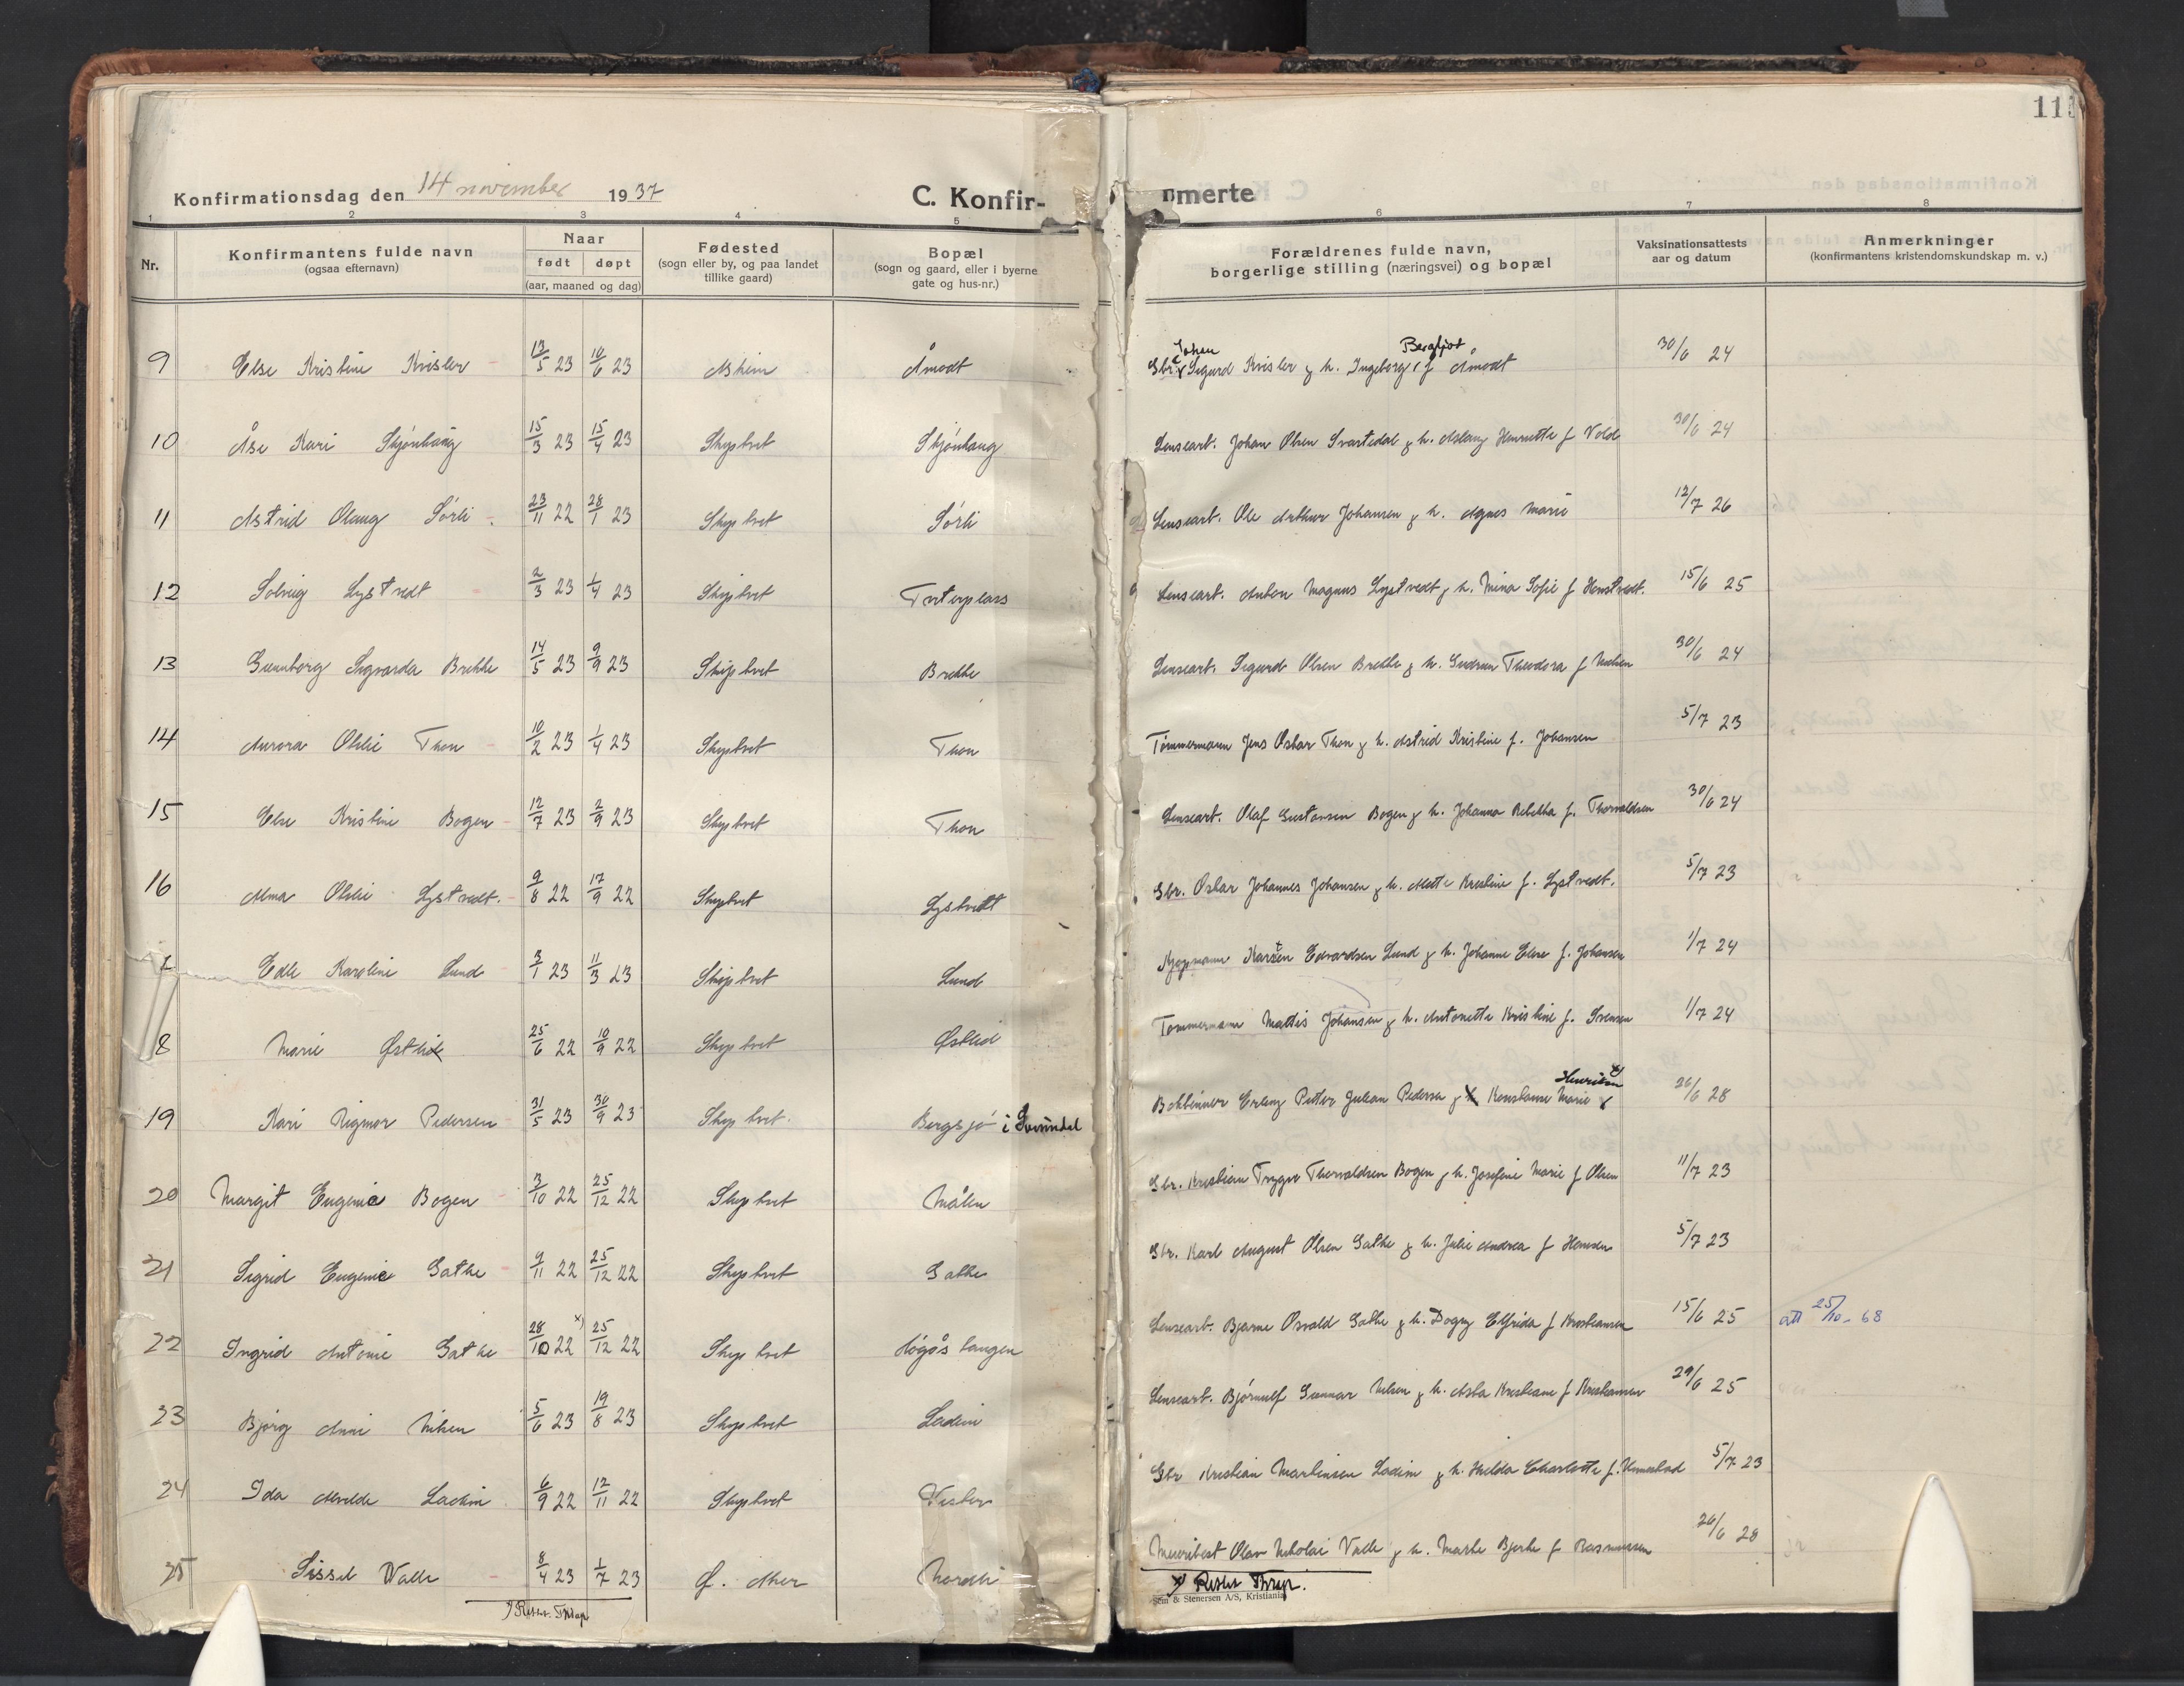 113
Konfirmationsdag den 14 november 1937
C. Konfir- nmerte
1 2 3 4 5 6 7 8
Nr.
Konfirmantens fulde navn
(ogsaa efternavn)
Naar
født døpt
(aar, maaned og dag)
Fødested
(sogn eller by, og paa landet
tillike gaard)
Bopæl
(sogn og gaard, eller i byerne
gate og hus-nr.)
Forældrenes fulde navn,
borgerlige stilling (næringsvei) og bopæl
Vaksinationsattests
aar og datum
Anmerkninger
(konfirmantens kristendomskundskap m. v.)
Johan Bergljot
9 Else Kristine Krisler 13/5 23 10/6 23 Askim Åmodt Gbr. Sigurd Krisler g h. Ingeborg f Åmodt 30/6 24
10 Åse Kari Skjønhaug 15/3 23 15/4 23 Skiptvet Skjønhaug Lensearb. Johan Olsen Svartedal g h. Aslaug Henriette f Vold 30/6 24
11 Astrid Olaug Sørli 23/11 22 28/1 23 Skiptvet Sørli Lensearb. Ole Arthur Johansen g h. Agnes Marie 12/7 26
12 Solveig Lystvedt 2/3 23 1/4 23 Skiptvet Lensearb. Anton Magnus Lystvedt g h. Mina Sofie f Henstvedt. 15/6 25
13 Gunnborg Sigvarda Brekke 14/5 23 9/9 23 Skiptvet Brekke Lensearb. Sigurd Olsen Brekke g h. Gudrun Theodora f Nilsen 30/6 24
14 Aurora Otilie Thon 10/2 23 1/4 23 Skiptvet Thon Tømmermann Jens Oskar Thon g h. Astrid Kristine f. Johansen 5/7 23
15 Else Kristine Bogen 12/7 23 2/9 23 Skiptvet Thon Lensearb. Olaf Gustavsen Bogen g h. Johanna Rebekka f. Thorvaldsen 30/6 24
16 Alma Otilie Lystvedt. 9/8 22 17/9 22 Skiptvet Lystvedt Gbr. Oskar Johannes Johansen g h. Mette Kristine f. Lystvedt. 5/7 23
Edle Karoline Lund 3/1 23 11/3 23 Skiptvet Lund Kjøpmann Karsten Edvardsen Lund g h. Johanne Elise f. Johansen 1/7 24
8 Marie Østlid 25/6 22 10/9 22 Skiptvet Østlid Tømmermann Mattis Johansen g h. Antonette Kristine f. Svensen 1/7 24
19 Kari Rigmor Pedersen 31/5 23 30/9 23 Skiptvet. Bergsjø i Svinndal Bokbinner Erling Petter Julian Pedersen g Konstanse Marie Henriksen 26/6 28
20 Margit Eugenie Bogen 3/10 22 25/12 22 Skiptvet Målen Gbr. Kristian Trygve Thorvaldsen Bogen g h. Josefine Marie f Olsen 11/7 23
21 Sigrid Eugenie Satke 9/11 22 25/12 22 Skiptvet Satke Gbr. Karl August Olsen Satke g h. Julie Andrea f Hansen 5/7 23
22 Ingrid Antonie Satke 28/10 22 x) 25/12 22 Skiptvet Lensearb. Bjarne Osvald Satke g h. Dagny Elfrida f Kristiansen 15/6 25 att 25/10 - 68
23 Bjørg Anni Nilsen 5/6 23 19/8 23 Skiptvet Ladim Lensearb. Bjørnulf Gunnar Nilsen g h. Asta Kristiane f Kristiansen 29/6 25
24 Ida Alvilde Ladim 6/9 22 12/11 22 Skiptvet Gbr Kristian Martinsen Ladim g h. Hulda Charlotte f. 5/7 23
25 Sissel Walle 8/4 23 1/7 23 f. Aker Olav Nikolai Valle g h. Marte Bjerke f Rasmussen 26/6 28
x) Rettet. Thrap
x) Rettet Thrap.
Sem & Stenersen A/S, Kristiania